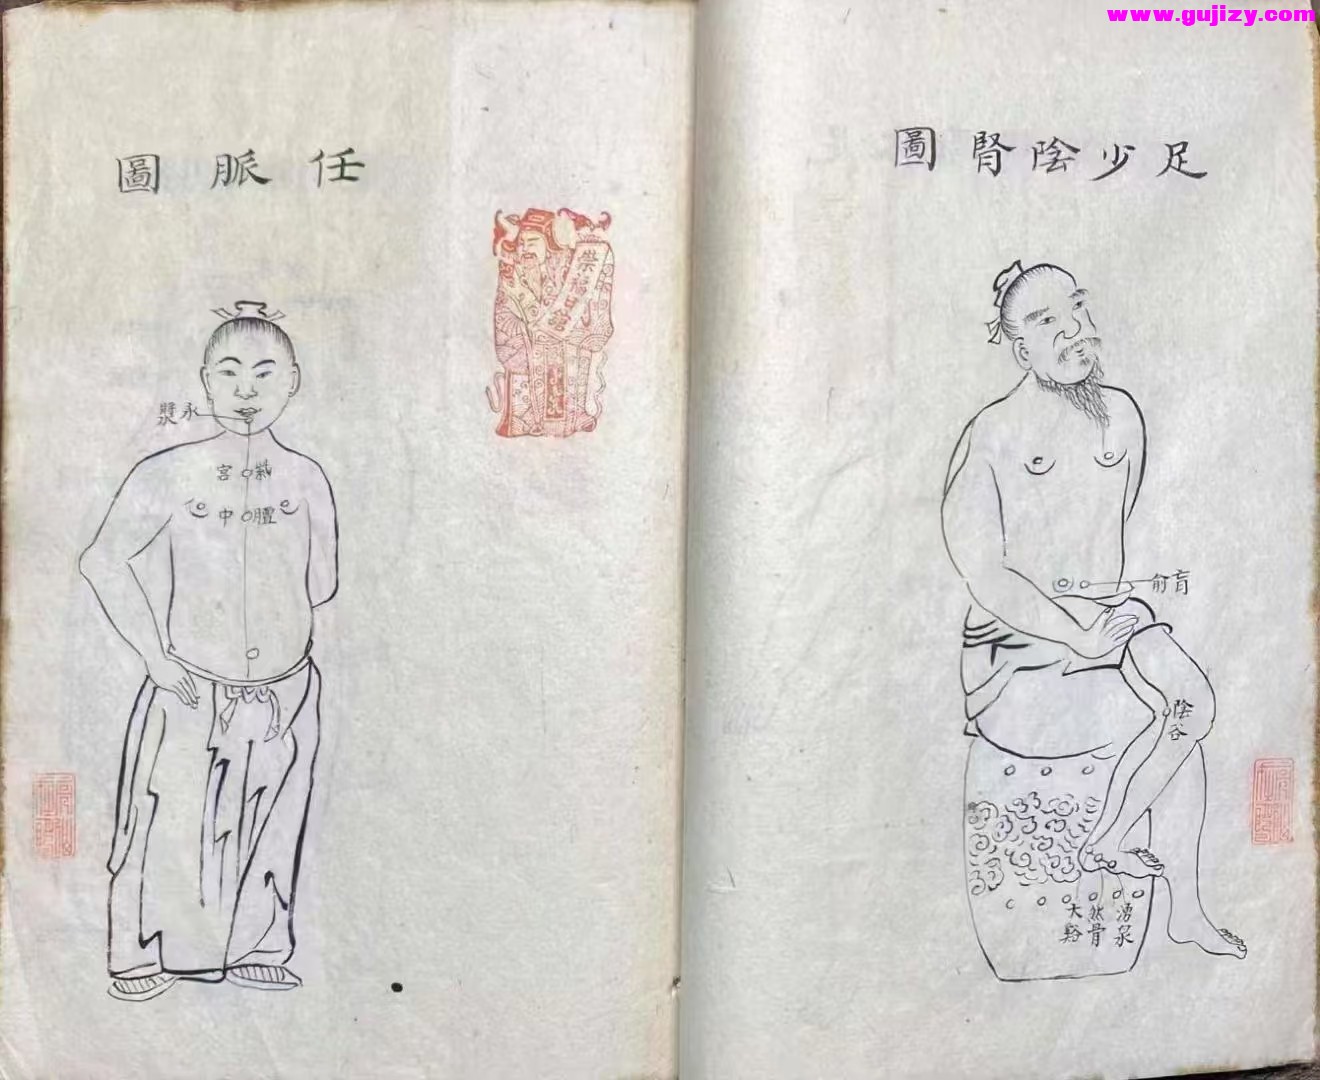 www.gujizy.com
足少陰腎圖
肓俞
陰谷
湧泉
然骨
大谿
任脈圖
永漿
紫宮
膻中